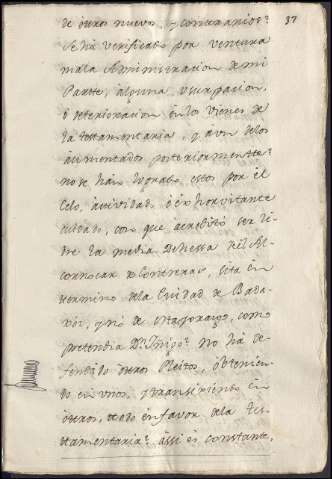 de otros nuevos, y contrarios? 37
Se há verificado por ventura
mala Administracion de mi
Parte, alguna usurpacion,
ó deterioracion en los vienes de
la testamentaria, y aun delos
aumentados posteriormente?
no se hán logrado estos por el
Celo, actividad, é exhorvitante
cuidado, con que acreditó ser li-
bre la media Dehessa del Al-
cornocar de Contreras, sita en
termino dela Ciudad de Bada-
xóz, y nó de Mayorazgo, como
pretendia Dn.
No há de-
fendido otros Pleitos, obtenien-
do en unos, y transigiendo en
otros, todo en favor dela tes-
tamentaria? assi es constante,